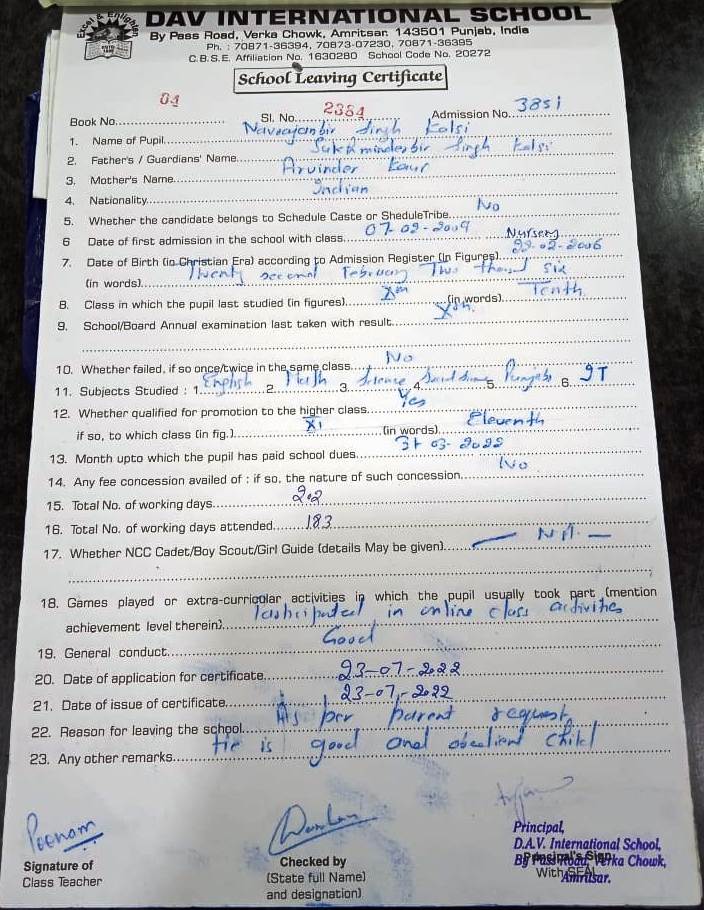 Excel & Enlighten
DAV INTERNATIONAL SCHOOL
By Pass Road, Verka Chowk, Amritsar. 143501 Punjab, India
Ph. : 70871-36394, 70873-07230, 70871-36395
C.B.S.E. Affiliation No. 1630280 School Code No. 20272
School Leaving Certificate
Book No. 04 Sl. No. 2384 Admission No. 3851
1. Name of Pupil Navrajanbir Singh Kalsi
2. Father's / Guardians' Name Sukhminderbir Singh Kalsi
3. Mother's Name Arvinder Kaur
4. Nationality Indian
5. Whether the candidate belongs to Schedule Caste or SheduleTribe No
6 Date of first admission in the school with class 07-02-2009 Nursery
7. Date of Birth (in Christian Era) according to Admission Register (In Figures) 22-02-2006
(in words) Twenty second February Two thousand six
8. Class in which the pupil last studied (in figures) Xth (in words) Tenth
9. School/Board Annual examination last taken with result Xth
10. Whether failed, if so once/twice in the same class No
11. Subjects Studied : 1. English 2. Math 3. Science 4. 5. Punjabi 6. IT
12. Whether qualified for promotion to the higher class Yes
if so, to which class (in fig.) XI (in words) Eleventh
13. Month upto which the pupil has paid school dues 31-03-2022
14. Any fee concession availed of : if so. the nature of such concession No
15. Total No. of working days 202
16. Total No. of working days attended 183
17. Whether NCC Cadet/Boy Scout/Girl Guide (details May be given) — NA —
18. Games played or extra-curricular activities in which the pupil usually took part (mention
achievement level therein) Participated in online class activities
19. General conduct Good
20. Date of application for certificate 23-07-2022
21. Date of issue of certificate 23-07-2022
22. Reason for leaving the school As per parent request
23. Any other remarks He is good and obedient child
Poonam
Signature of
Class Teacher
Checked by
(State full Name)
and designation)
Principal,
D.A.V. International School,
By Pass Road, Verka Chowk,
Amritsar.
Principal's Sign
With SEAL